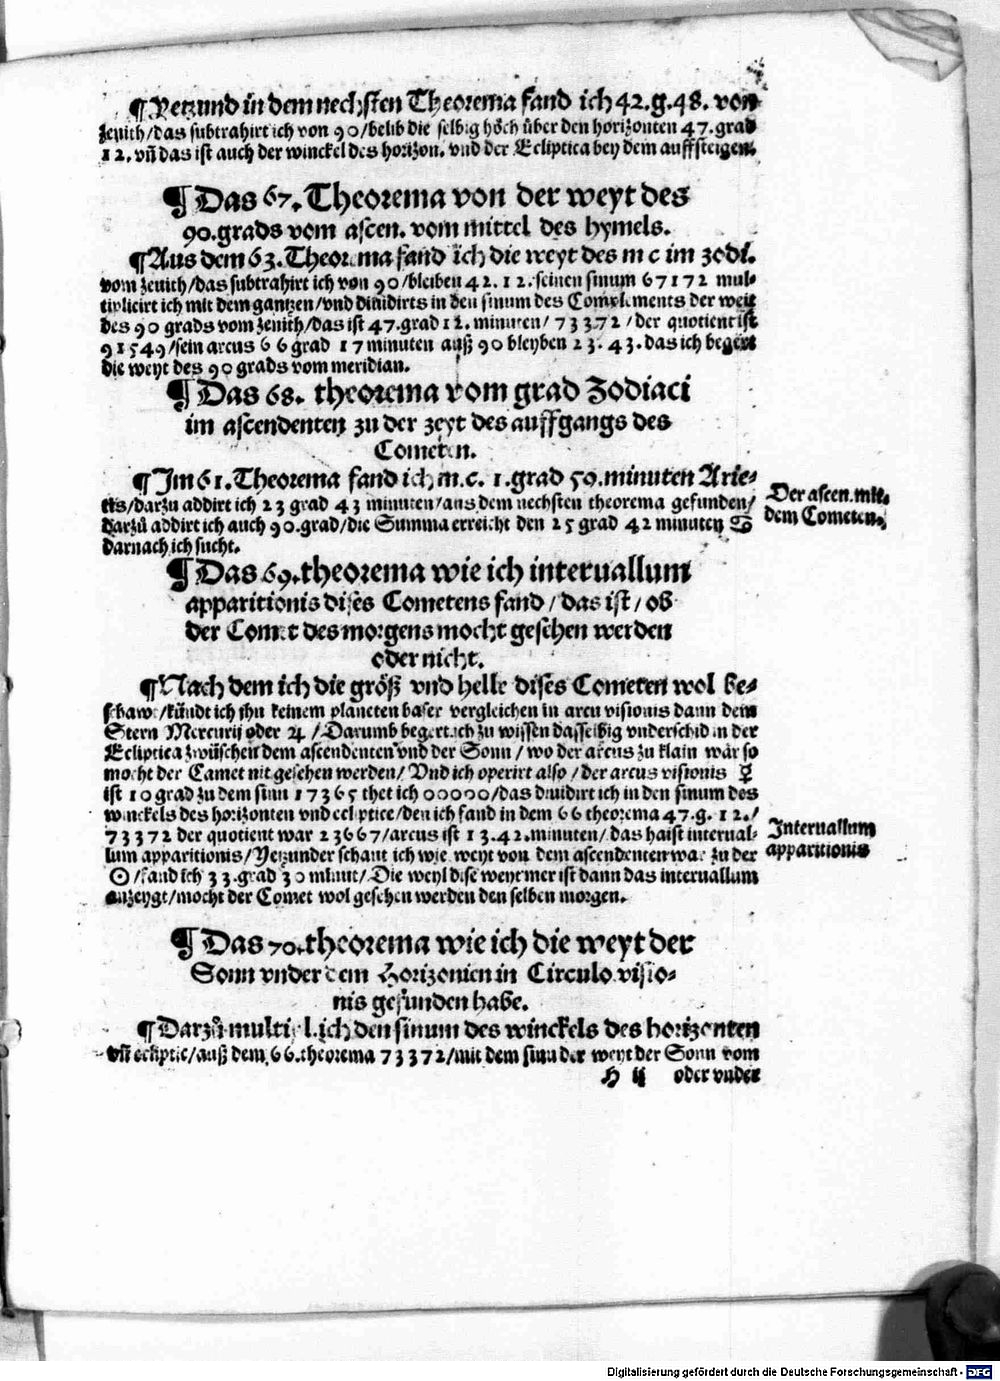 ¶Yetzund in dem nechsten Theorema fand ich 42.g.48. von
zenith/das subtrahirt ich von 90/belib die selbig höch über den horizonten 47.grad
12. vñ das ist auch der winckel des horizon. vnd der Ecliptica bey dem auffsteigen.
¶Das 67. Theorema von der weyt des
90.grads vom ascen. vom mittel des hymels.
¶Aus dem 63. Theorema fand ich die weyt des m c im zodi.
vom zenith/das subtrahirt ich von 90/bleiben 42. 12. seinen sinum 67172 mul-
tiplicirt ich mit dem gantzen/vnd diuidirts in den sinum des Complements der weit
des 90 grads vom zenith/das ist 47.grad 12. minuten/ 73372 /der quotient ist
91549/sein arcus 66 grad 17 minuten auß 90 bleyben 23. 43. das ich begert
die weyt des 90 grads vom meridian.
¶Das 68. theorema vom grad Zodiaci
im ascendenten zu der zeyt des auffgangs des
Cometen.
¶Im 61. Theorema fand ich m.c. 1.grad 59.minuten Arie-
tis/darzu addirt ich 23 grad 43 minuten/aus dem nechsten theorema gefunden/
darzů addirt ich auch 90.grad/die Summa erreicht den 25 grad 42 minuten ♋
darnach ich sucht.
Der ascen. mit
dem Cometen.
¶Das 69.theorema wie ich interuallum
apparitionis dises Cometens fand/das ist/ob
der Comet des morgens mocht gesehen werden
oder nicht.
¶Nach dem ich die größ vnd helle dises Cometen wol be-
schawt/kündt ich ihn keinem planeten baser vergleichen in arcu visionis dann dem
Stern Mercurij oder ♃/Darumb begert ich zu wissen dasselbig vnderschid in der
Ecliptica zwüschen dem ascendenten vnd der Sonn/wo der arcus zu klain wär so
mocht der Camet nit gesehen werden/Vnd ich operirt also/der arcus visionis ☿
ist 10 grad zu dem sinn 17365 thet ich 00000/das diuidirt ich in den sinum des
winckels des horizonten vnd ecliptice/den ich fand in dem 66 theorema 47.g. 12./
73372 der quotient war 23667/arcus ist 13.42.minuten/das haist interual-
lum apparitionis/Yetzunder schaut ich wie weyt von dem ascendenten war zu der
☉/fand ich 33.grad 30 minut/Die weyl dise weyt mer ist dann das interuallum
anzeygt/mocht der Comet wol gesehen werden den selben morgen.
Interuallum
apparitionis
¶Das 70.theorema wie ich die weyt der
Sonn vnder dem Horizonten in Circulo visio-
nis gefunden habe.
¶Darzů multipl.ich den sinum des winckels des horizonten
vñ ecliptic/auß dem 66.theorema 73372/mit dem sinu der weyt der Sonn vom
H ij oder vnder
Digitalisierung gefördert durch die Deutsche Forschungsgemeinschaft - DFG